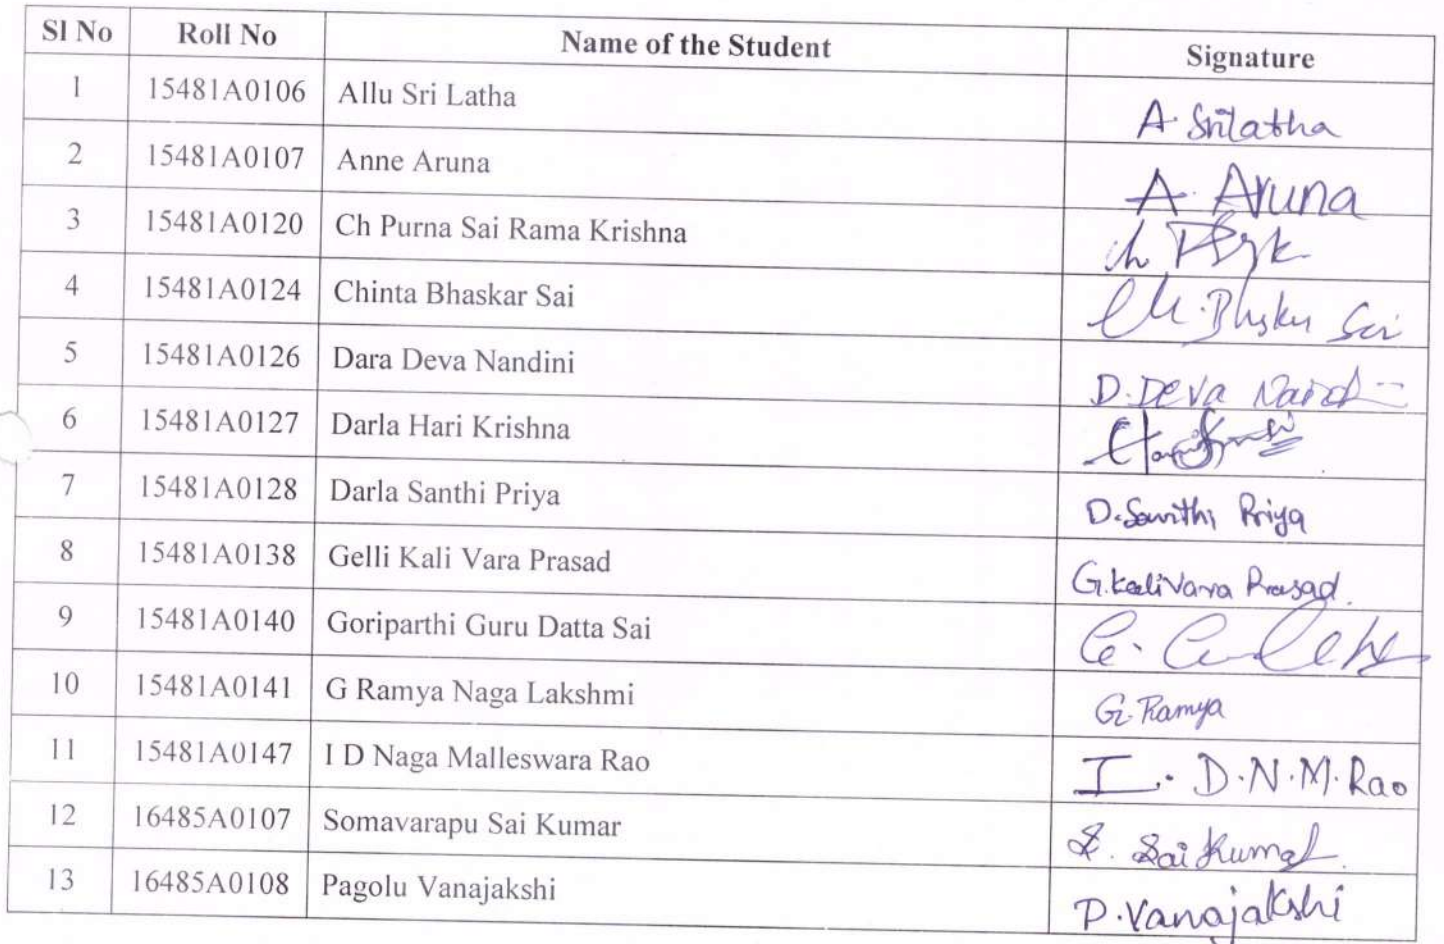 Sl No Roll No Name of the Student Signature
1 15481A0106 Allu Sri Latha A. Srilatha
2 15481A0107 Anne Aruna A. Aruna
3 15481A0120 Ch Purna Sai Rama Krishna
4 15481A0124 Chinta Bhaskar Sai Ch. Bhskr Sai
5 15481A0126 Dara Deva Nandini D. Deva
6 15481A0127 Darla Hari Krishna
7 15481A0128 Darla Santhi Priya D. Santhi Priya
8 15481A0138 Gelli Kali Vara Prasad G. Kali Vara Prasad.
9 15481A0140 Goriparthi Guru Datta Sai
10 15481A0141 G Ramya Naga Lakshmi G. Ramya
11 15481A0147 I D Naga Malleswara Rao I. D.N.M. Rao
12 16485A0107 Somavarapu Sai Kumar S. Sai Kumar
13 16485A0108 Pagolu Vanajakshi P. Vanajakshi